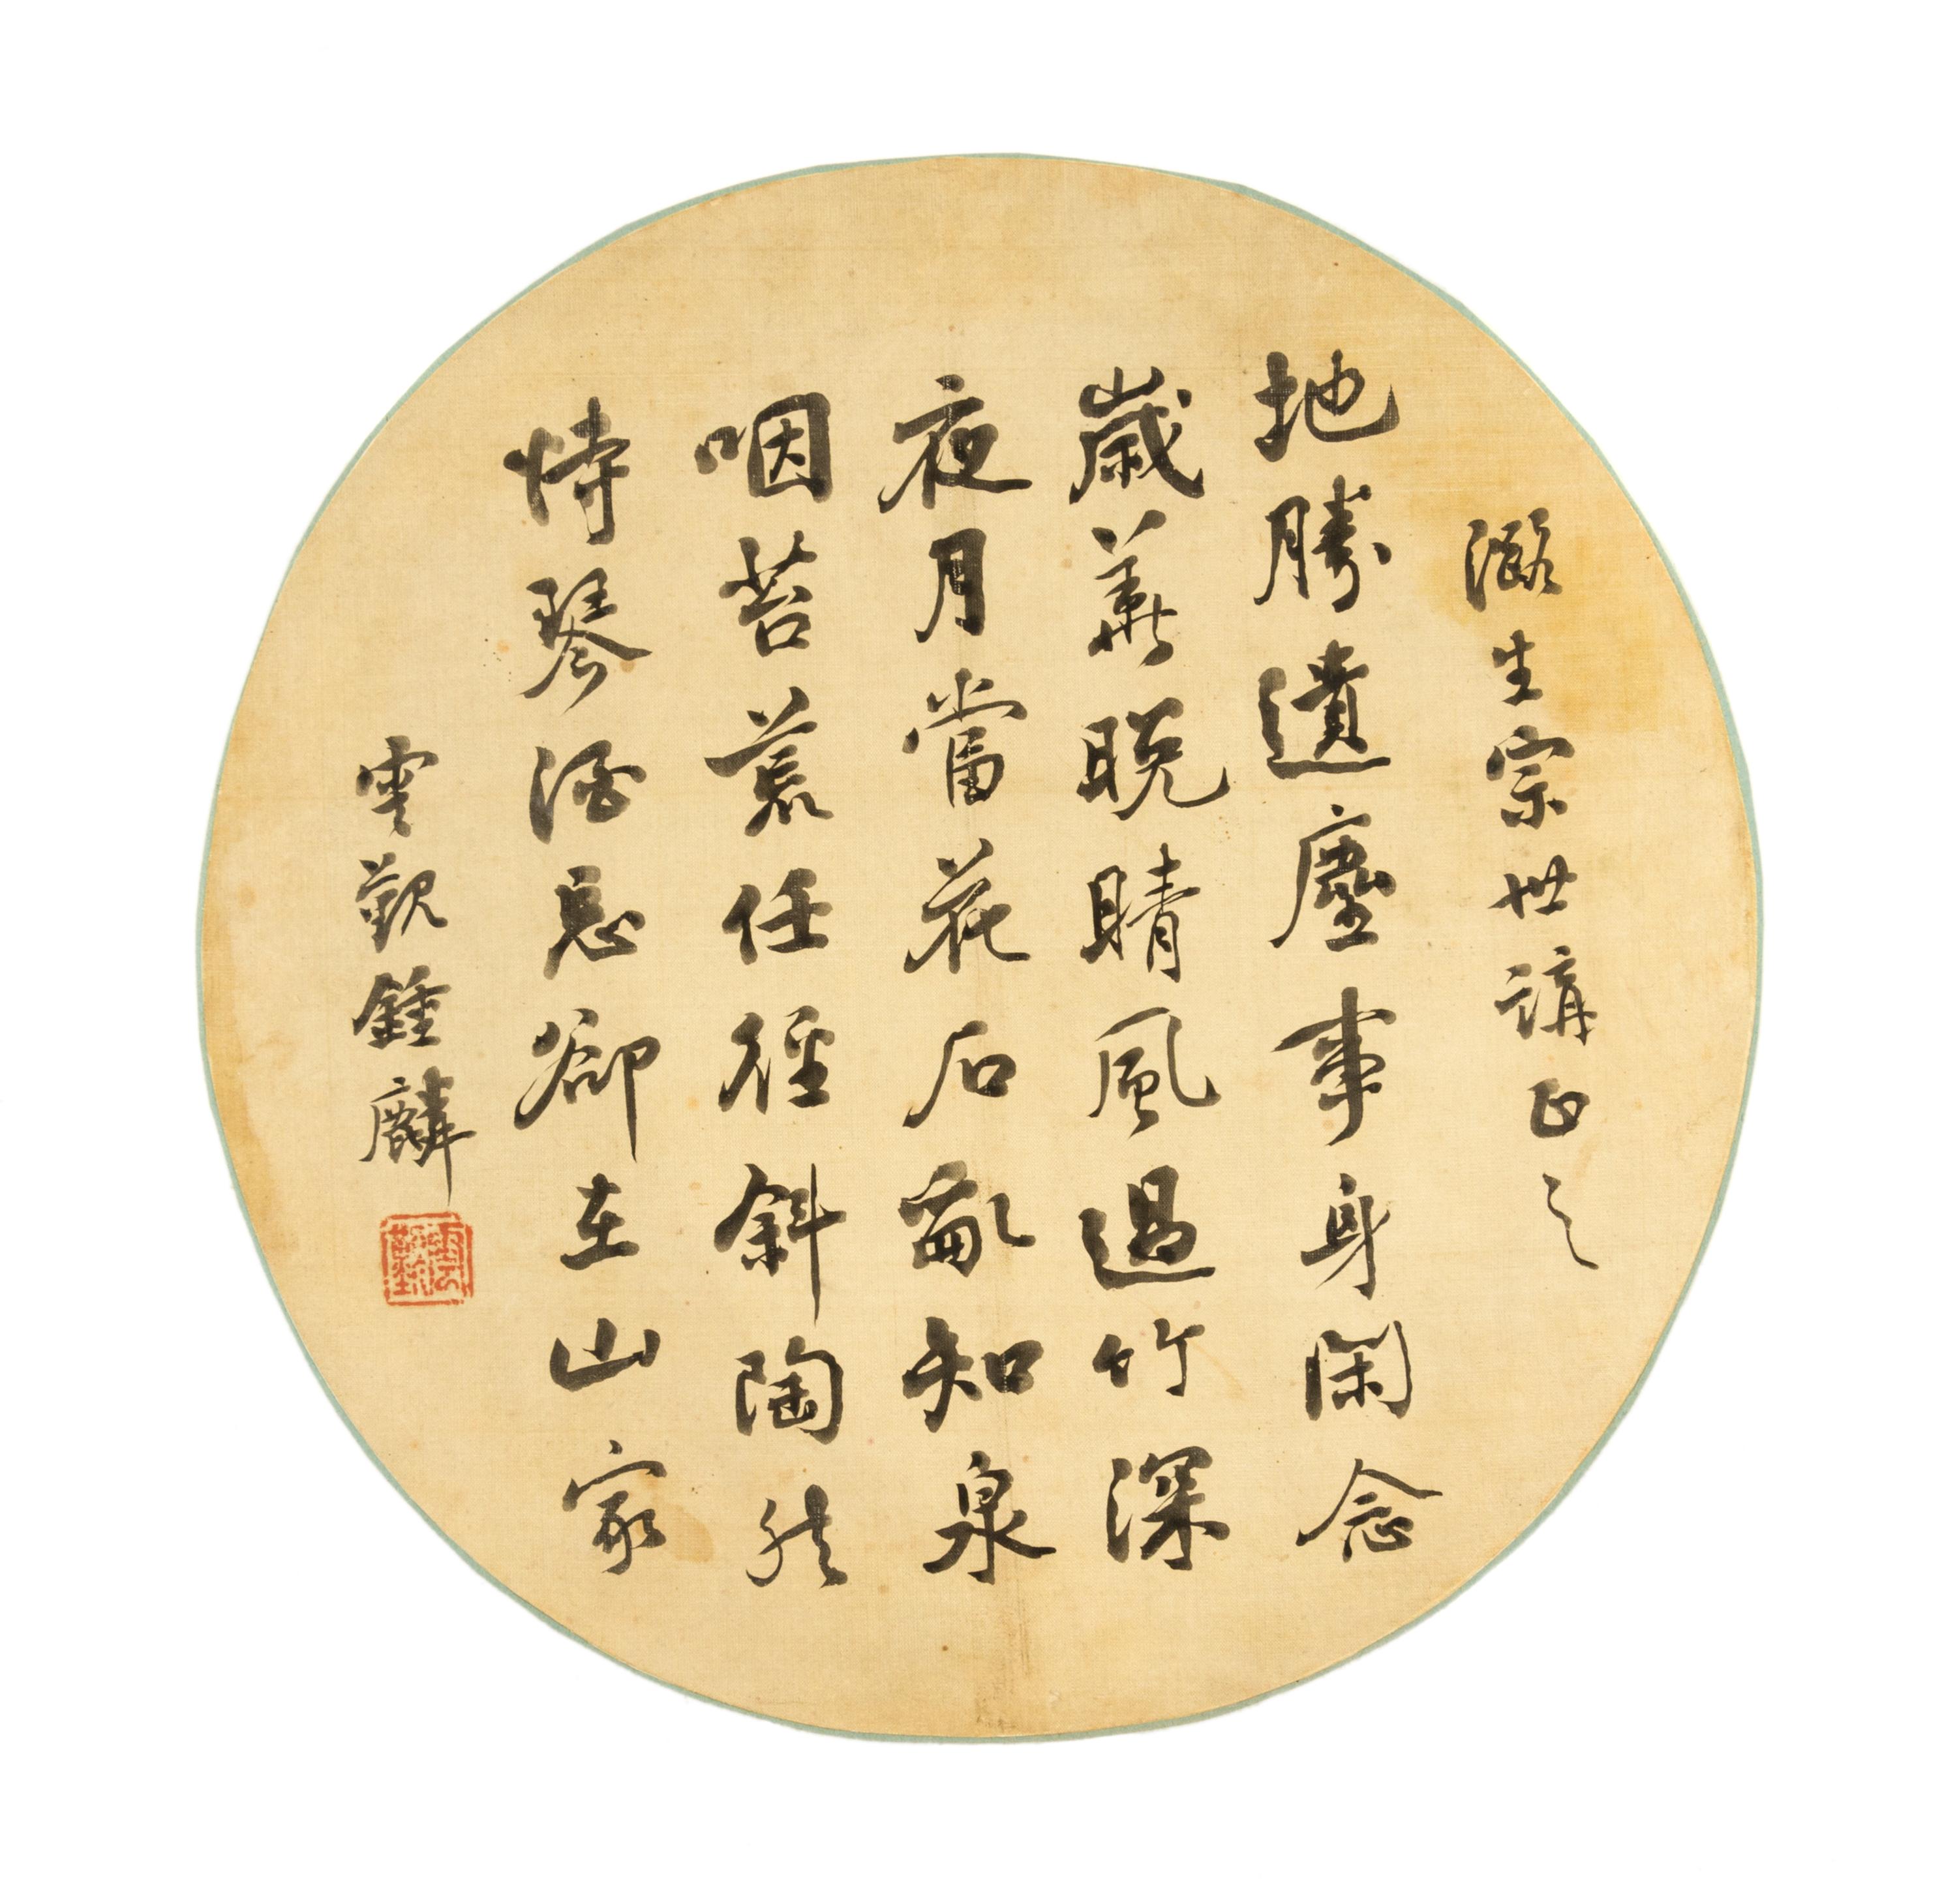 潞生宗世講正之
地勝遺塵事身閑念
歲華晚晴風過竹深
夜月當花石亂知泉
咽苔荒任徑斜陶然
恃琴酒忘卻在山家
雲覲鍾麟
雲覲